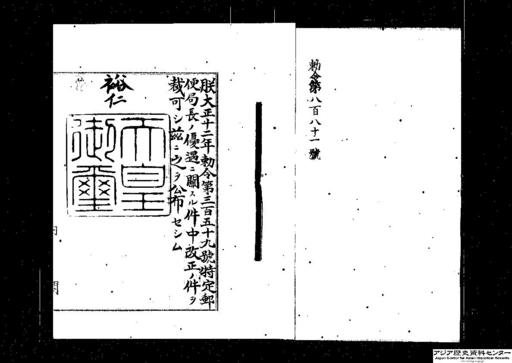 勅令第八百八十一號
朕大正十二年勅令第三百五十九號特定郵
便局長ノ優遇ニ關スル件中改正ノ件ヲ
裁可シ茲ニ之ヲ公布セシム
裕仁
天皇
御璽
内閣
アジア歴史資料センター
Japan Center for Asian Historical Records